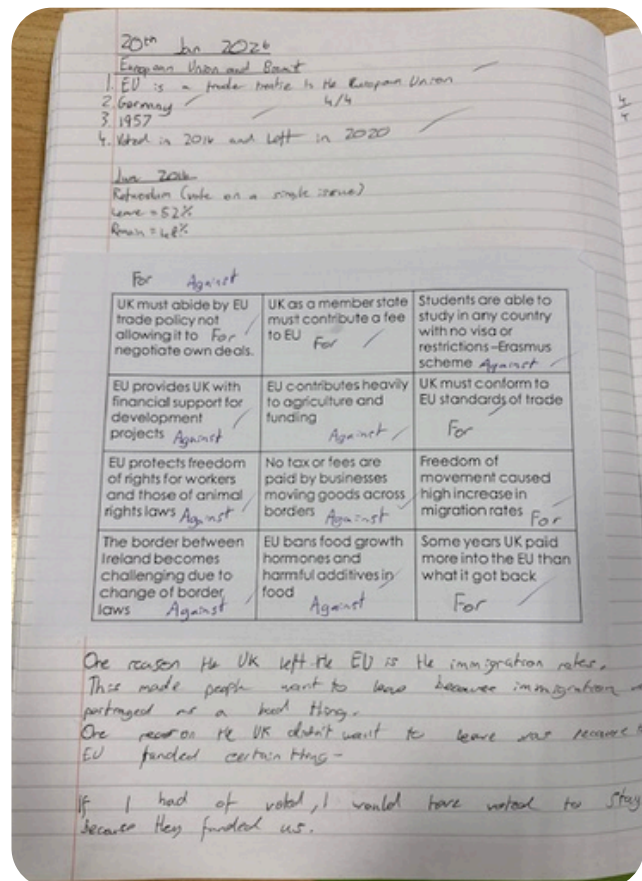 20th Jan 2026
European Union and Brexit
1. EU is a trader treatie in the European Union
2. Germany 4/4
3. 1957
4. Voted in 2016 and Left in 2020
4/4
Jun 2016
Refrendum (vote on a single issue)
Leave = 52%
Remain = 48%
For Against
UK must abide by EU
trade policy not
allowing it to For
negotiate own deals.
UK as a member state
must contribute a fee
to EU
For
Students are able to
study in any country
with no visa or
restrictions –Erasmus
scheme Against
EU provides UK with
financial support for
development
projects Against
EU contributes heavily
to agriculture and
funding
Against
UK must conform to
EU standards of trade
For
EU protects freedom
of rights for workers
and those of animal
rights laws Against
No tax or fees are
paid by businesses
moving goods across
borders Against
Freedom of
movement caused
high increase in
migration rates For
The border between
Ireland becomes
challenging due to
change of border
laws Against
EU bans food growth
hormones and
harmful additives in
food
Against
Some years UK paid
more into the EU than
what it got back
For
One reason the UK left the EU is the immigration rates.
This made people want to leave because immigration
portrayed as a bad thing.
One reason the UK didn't want to leave was because
EU funded certain things
If I had of voted, I would have voted to stay
because they funded us.